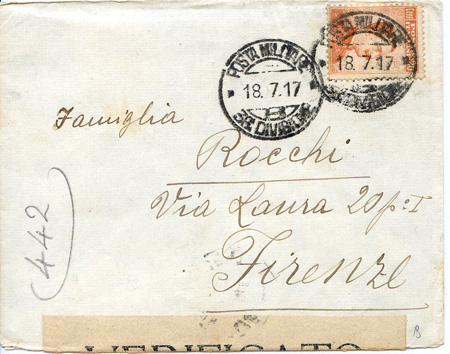 POSTA MILITARE
18.7.17
B
POSTA MILITARE
18.7.17
Famiglia
Rocchi
Via Laura 20 p.º I
Firenze
442
VERIFICATO
B